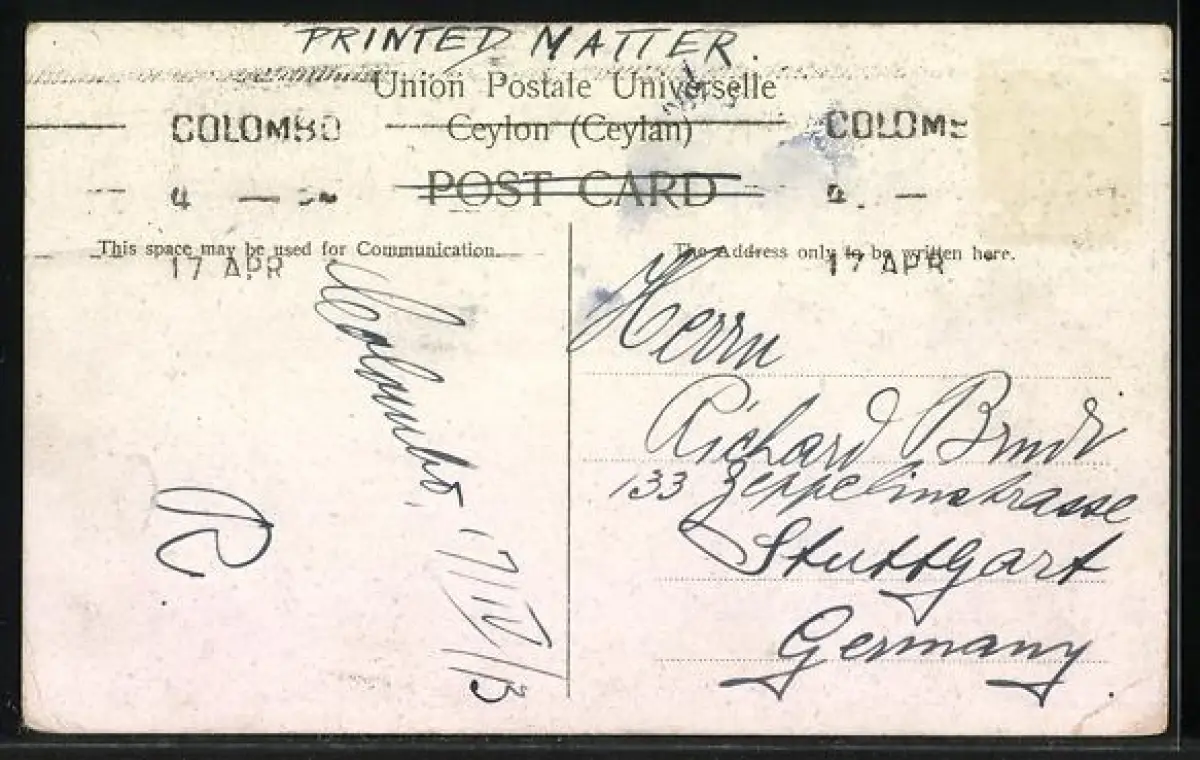 PRINTED MATTER.
Union Postale Universelle
Ceylon (Ceylan)
COLOMBO
COLOMB
POST CARD
4 —
4. —
This space may be used for Communication.
The Address only to be written here.
17 APR
17 APR
Colombo, 17/IV/13
R
Herrn
Richard
133 Zeppelinstrasse
Stuttgart
Germany